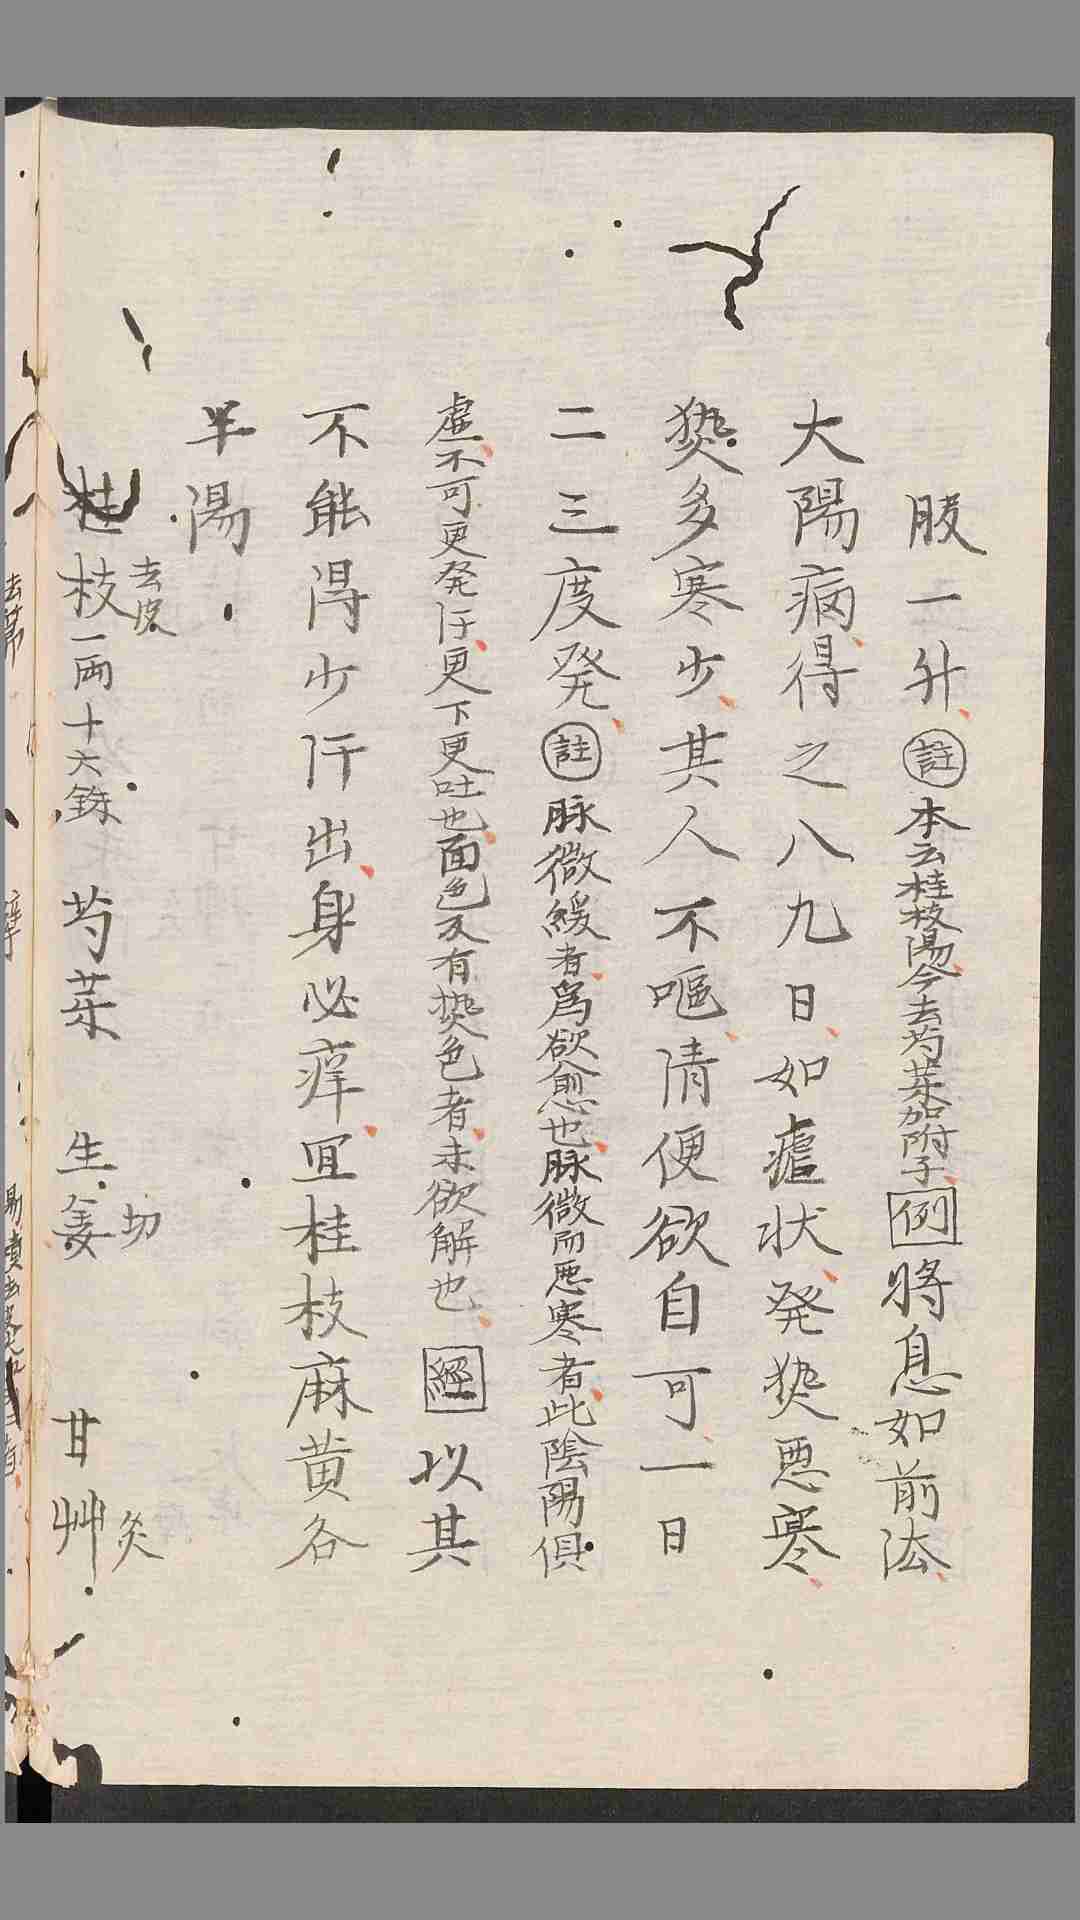 服一升註本云桂枝湯今去芍薬加附子例將息如前法
大陽病得之八九日如瘧状発热悪寒
热多寒少其人不嘔清便欲自可一日
二三度発註脉微緩者為欲愈也脉微而悪寒者此陰陽俱
虚不可更発汗更下更吐也面色反有热色者未欲解也經以其
不能得少汗出身必痒宜桂枝麻黄各
半湯
桂枝去皮一兩十六銖 芍薬 生姜切 甘艸炙